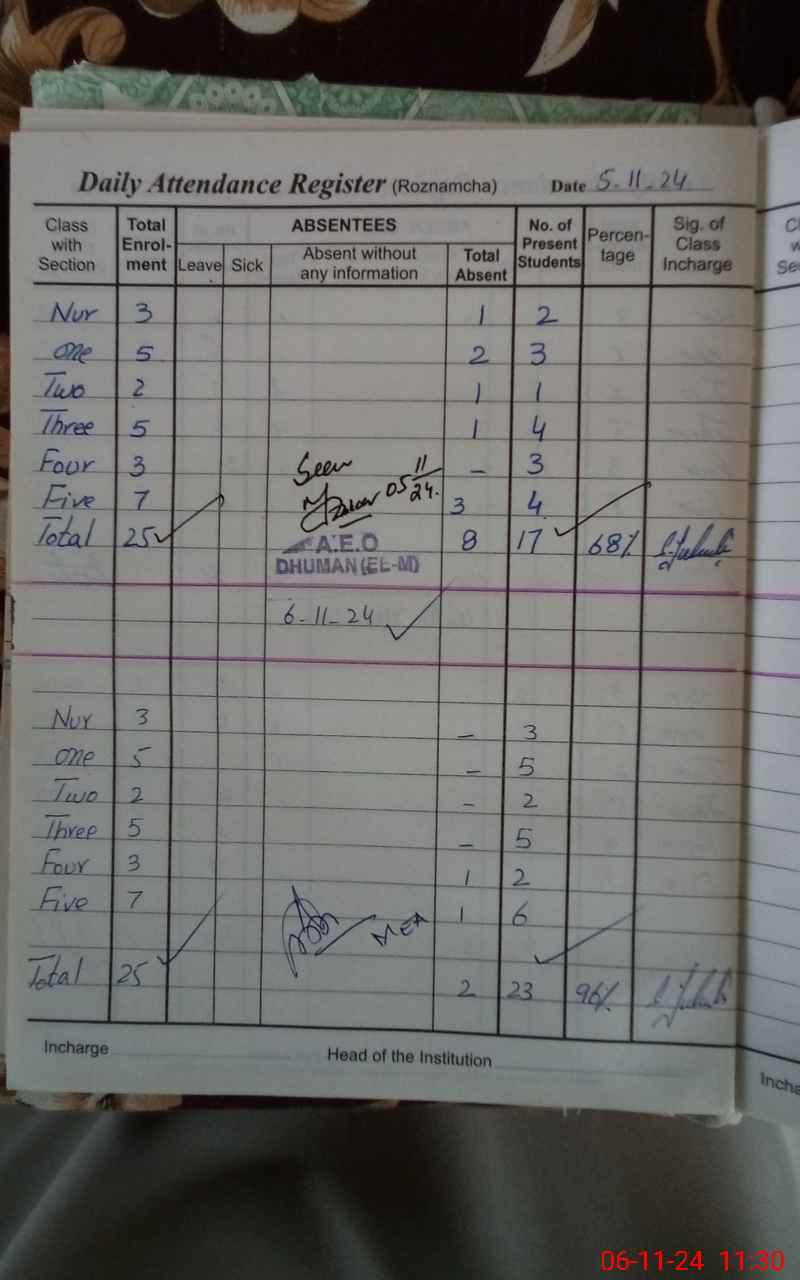 Daily Attendance Register (Roznamcha) Date 5-11-24
Class with Section Total Enrol-ment ABSENTEES No. of Present Students Percen-tage Sig. of Class Incharge
Leave Sick Absent without any information Total Absent
Nur 3 1 2
One 5 2 3
Two 2 1 1
Three 5 1 4
Four 3 - 3
Seen
05 11/24.
Five 7 3 4
Total 25 8 17 68%
A.E.O
DHUMAN (EE-M)
6-11-24
Nur 3 - 3
One 5 - 5
Two 2 - 2
Three 5 - 5
Four 3 1 2
Five 7 1 6
MEA
Total 25 2 23 96%
Incharge Head of the Institution
Incha
06-11-24 11:30